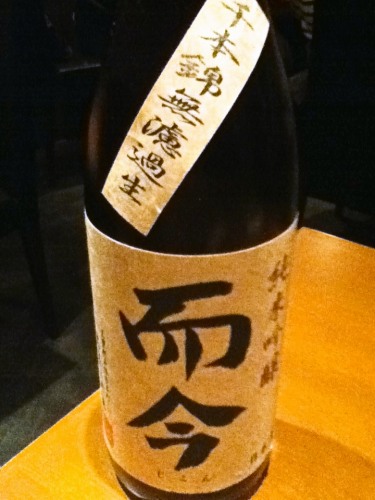 千本錦無濾過生
純米吟醸
而今
じこん